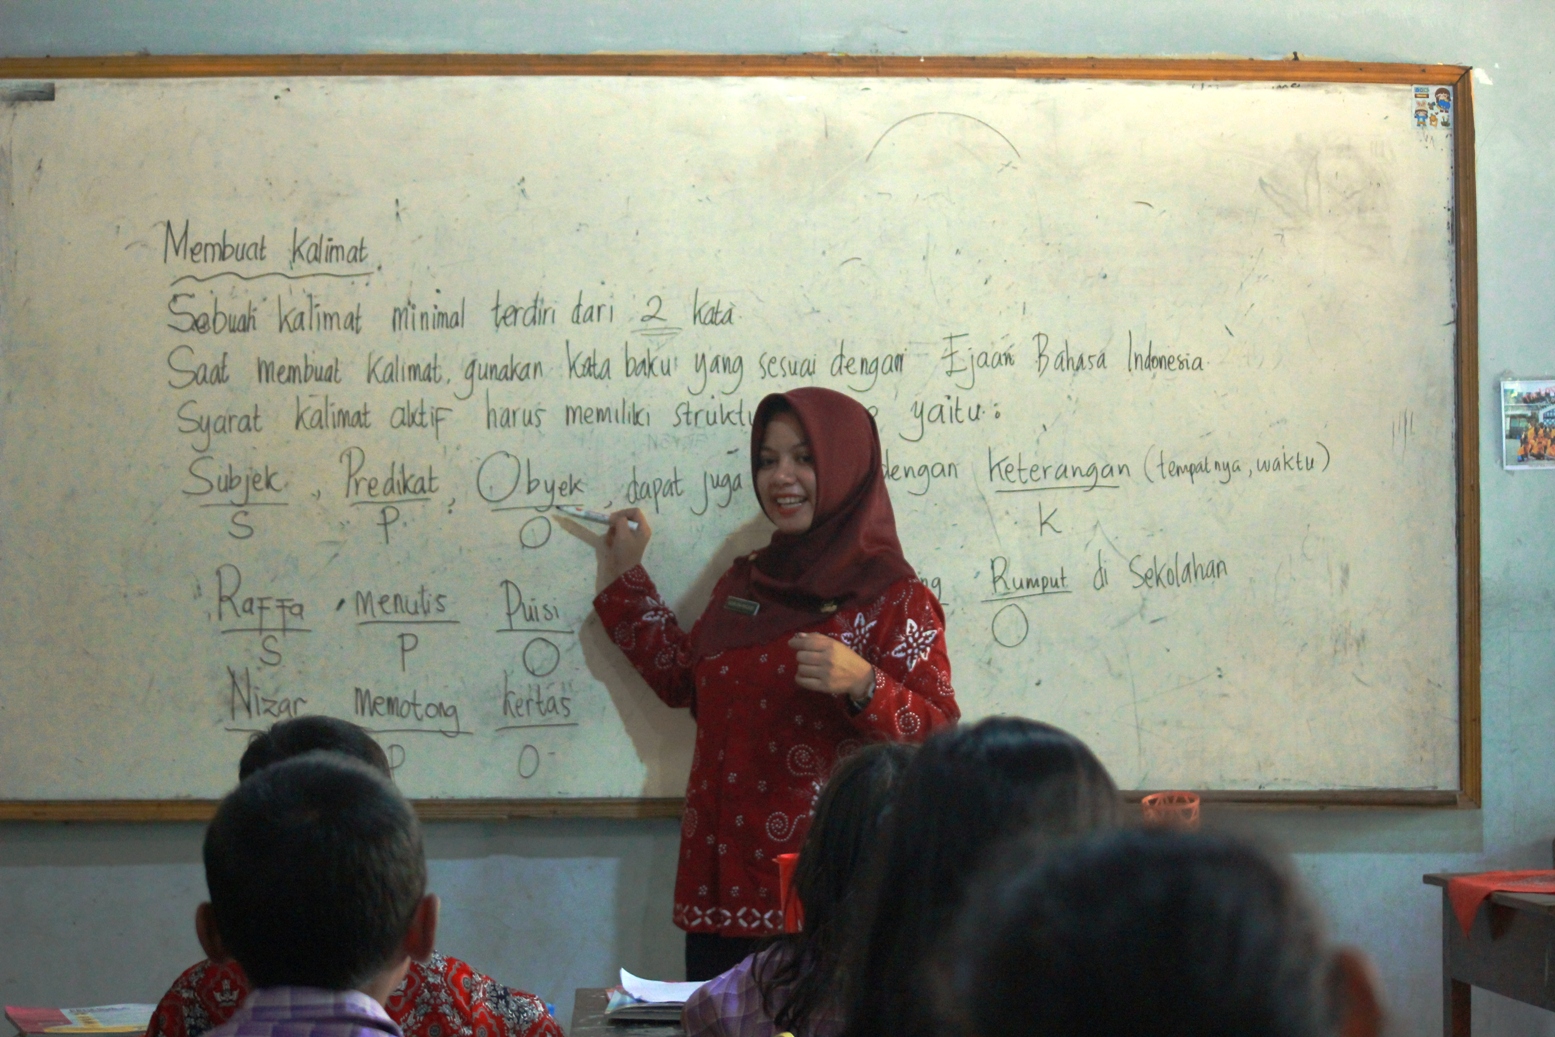 Membuat kalimat
Sebuah kalimat minimal terdiri dari 2 kata
Saat membuat kalimat, gunakan kata baku yang sesuai dengan Ejaan Bahasa Indonesia.
Syarat kalimat aktif harus memiliki yaitu :
Subjek, Predikat, Obyek, dapat juga dengan keterangan (tempatnya, waktu)
S P O K
Raffa menulis Puisi Rumput di Sekolahan
S P O O
Nizar memotong kertas
P O